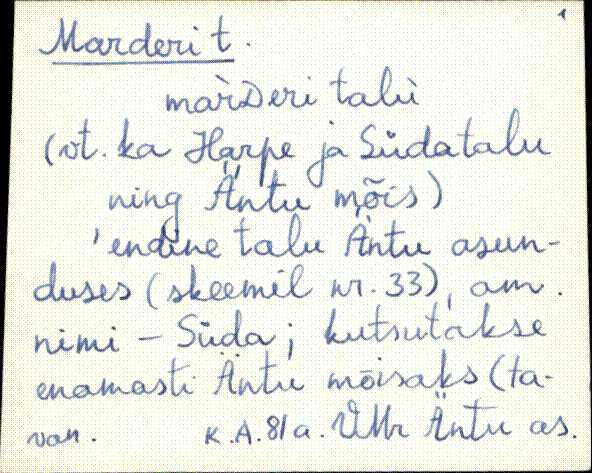 Marderi t.
màrDeri talù
(vt. ka Härpe ja Südatalu
ning Äntu mõis)
'endine talu Äntu asun-
duses (skeemil nr. 33), am.
nimi – Süda; kutsutakse
enamasti Äntu mõisaks (ta-
van. K.A. 81 a. VMr Äntu as.